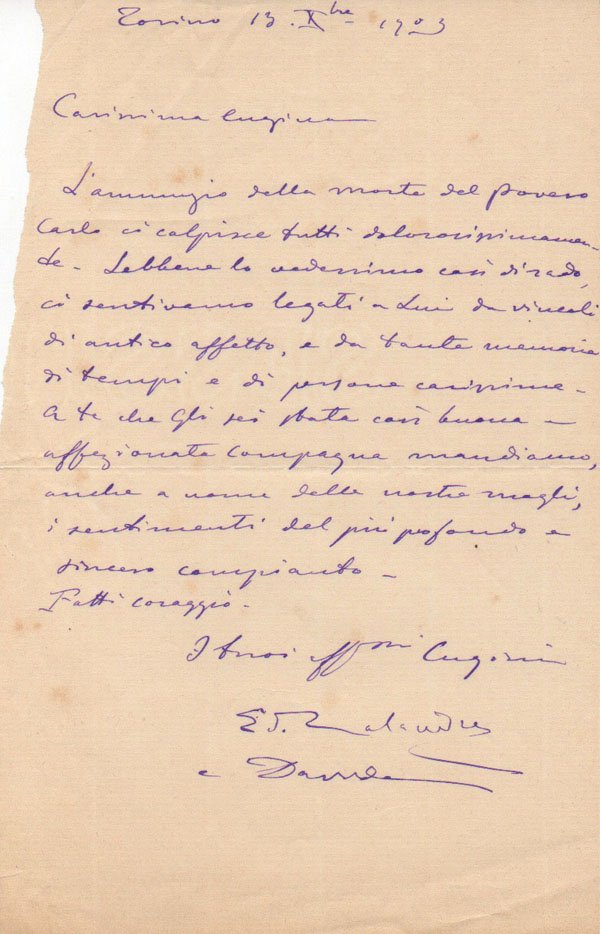 Torino 13. Xbre 1903
Carissima Cugina
L'annunzio della morte del povero
Carlo ci colpisce tutti dolorosissimamen-
te. Sebbene lo vedessimo così di rado,
ci sentivamo legati a Lui da vincoli
di antico affetto, e da tante memorie
di tempi e di persone carissime -
A te che gli sei stata così buona e
affezionata compagna mandiamo,
anche a nome delle nostre mogli,
i sentimenti del più profondo e
sincero compianto -
Fatti coraggio.
I tuoi affmi Cugini
Ed. Calandra
e Davide